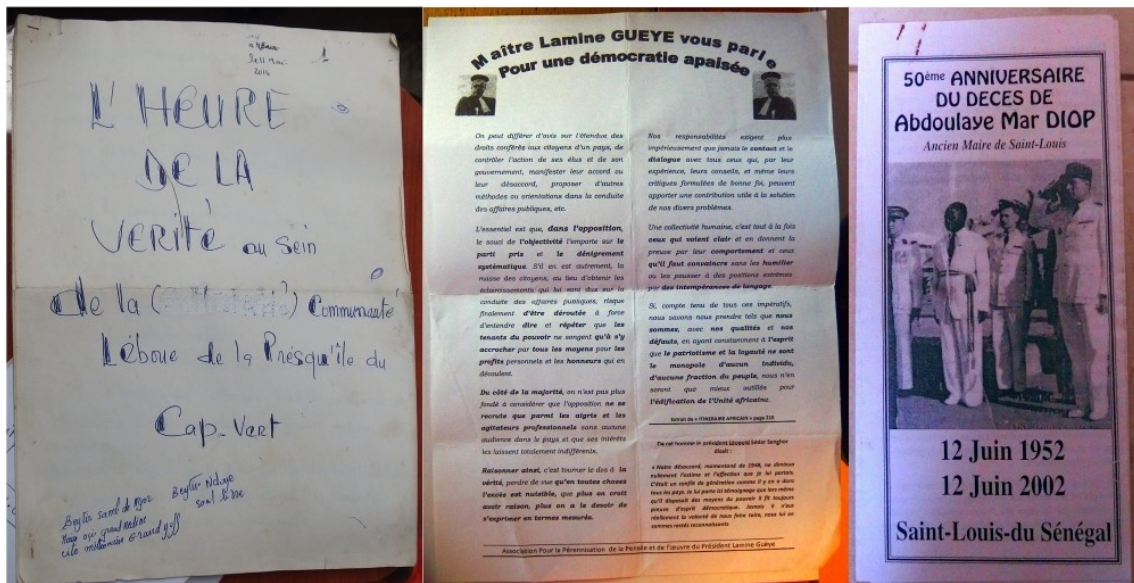 1
11 Mai
2016
L'HEURE
DE LA
VERITÉ au Sein
de la ( ) Communauté
Léboue de la Presqu'île du
Cap-Vert
Maître Lamine GUEYE vous parle
Pour une démocratie apaisée
On peut différer d'avis sur l'étendue des
droits conférés aux citoyens d'un pays, de
contrôler l'action de ses élus et de son
gouvernement, manifester leur accord ou
leur désaccord, proposer d'autres
méthodes ou orientations dans la conduite
des affaires publiques, etc.
L'essentiel est que, dans l'opposition,
le souci de l'objectivité l'emporte sur le
parti pris et le dénigrement
systématique. S'il en est autrement, la
masse des citoyens, au lieu d'obtenir les
éclaircissements qui lui sont dus sur la
conduite des affaires publiques, risque
finalement d'être déroutée à force
d'entendre dire et répéter que les
tenants du pouvoir ne songent qu'à s'y
accrocher par tous les moyens pour les
profits personnels et les honneurs qui en
découlent.
Du côté de la majorité, on n'est pas plus
fondé à considérer que l'opposition ne se
recrute que parmi les aigris et les
agitateurs professionnels sans aucune
audience dans le pays et que ses intérêts
les laissent totalement indifférents.
Raisonner ainsi, c'est tourner le dos à la
vérité, perdre de vue qu'en toutes choses
l'excès est nuisible, que plus on croit
avoir raison, plus on a le devoir de
s'exprimer en termes mesurés.
Nos responsabilités exigent plus
impérieusement que jamais le contact et le
dialogue avec tous ceux qui, par leur
expérience, leurs conseils, et même leurs
critiques formulées de bonne foi, peuvent
apporter une contribution utile à la solution
de nos divers problèmes.
Une collectivité humaine, c'est tout à la fois
ceux qui voient clair et en donnent la
preuve par leur comportement et ceux
qu'il faut convaincre sans les humilier
ou les pousser à des positions extrêmes
par des intempérances de langage.
Si, compte tenu de tous ces impératifs,
nous savons nous prendre tels que nous
sommes, avec nos qualités et nos
défauts, en ayant constamment à l'esprit
que le patriotisme et la loyauté ne sont
le monopole d'aucun individu,
d'aucune fraction du peuple, nous n'en
seront que mieux outillés pour
l'édification de l'Unité africaine.
Extrait de « ITINERAIRE AFRICAIN » page 216
De cet homme le président Léopold Sédar Senghor
disait :
« Notre désaccord, momentané de 1948, ne diminua
nullement l'estime et l'affection que je lui portais.
C'était un conflit de génération comme il y en a dans
tous les pays. Je lui porte ici témoignage que lors même
qu'il disposait des moyens du pouvoir il fit toujours
preuve d'esprit démocratique. Jamais il n'eut
réellement la volonté de nous faire taire, nous lui en
sommes restés reconnaissants
Association Pour la Pérennisation de la Pensée et de l'œuvre du Président Lamine Guèye
50ème ANNIVERSAIRE
DU DECES DE
Abdoulaye Mar DIOP
Ancien Maire de Saint-Louis
12 Juin 1952
12 Juin 2002
Saint-Louis-du Sénégal